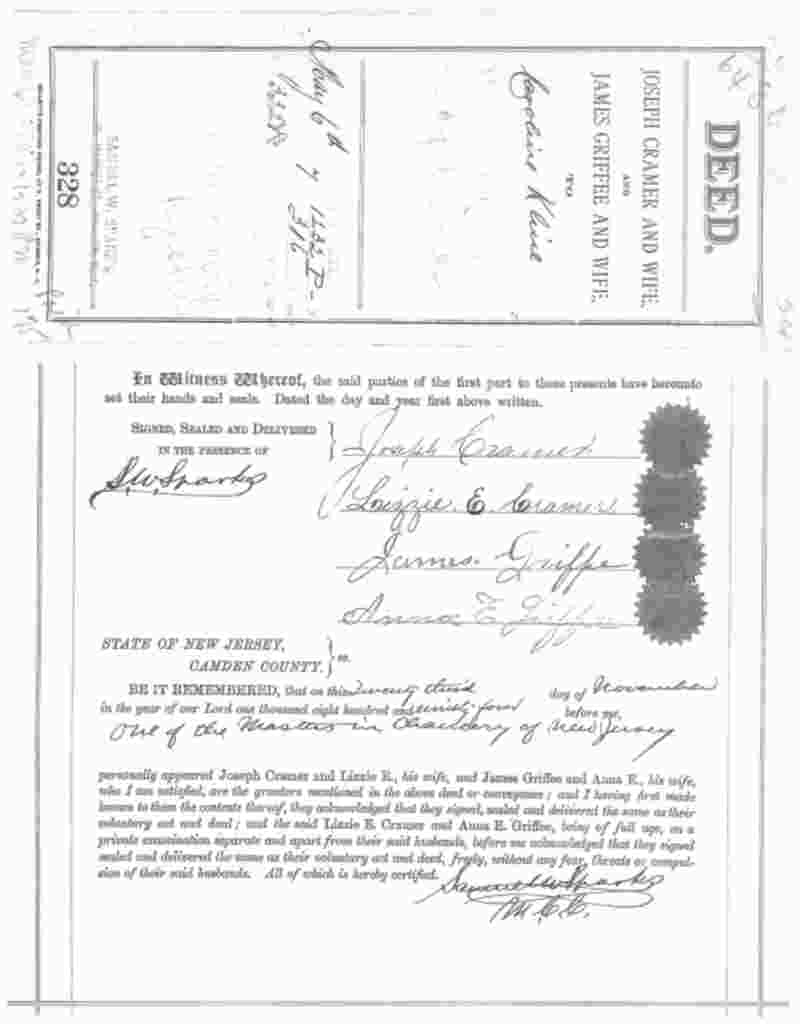 DEED.
JOSEPH CRAMER AND WIFE,
AND
JAMES GRIFFEE AND WIFE,
TO
Caroline Kline
328
In Witness Whereof, the said parties of the first part to these presents have hereunto
set their hands and seals. Dated the day and year first above written.
SIGNED, SEALED AND DELIVERED
IN THE PRESENCE OF
S.W. Sparks
Joseph Cramer
Lizzie E. Cramer
James Griffee
Anna E. Griffee
STATE OF NEW JERSEY,
CAMDEN COUNTY. } ss.
BE IT REMEMBERED, that on this Twenty third day of November
in the year of our Lord one thousand eight hundred and ninety-four before me,
One of the Masters in Chancery of New Jersey
personally appeared Joseph Cramer and Lizzie E., his wife, and James Griffee and Anna E., his wife,
who I am satisfied, are the grantors mentioned in the above deed or conveyance; and I having first made
known to them the contents thereof, they acknowledged that they signed, sealed and delivered the same as their
voluntary act and deed; and the said Lizzie E. Cramer and Anna E. Griffee, being of full age, on a
private examination separate and apart from their said husbands, before me acknowledged that they signed
sealed and delivered the same as their voluntary act and deed, freely, without any fear, threats or compul-
sion of their said husbands. All of which is hereby certified.
Samuel W Sparks
M.C.C.